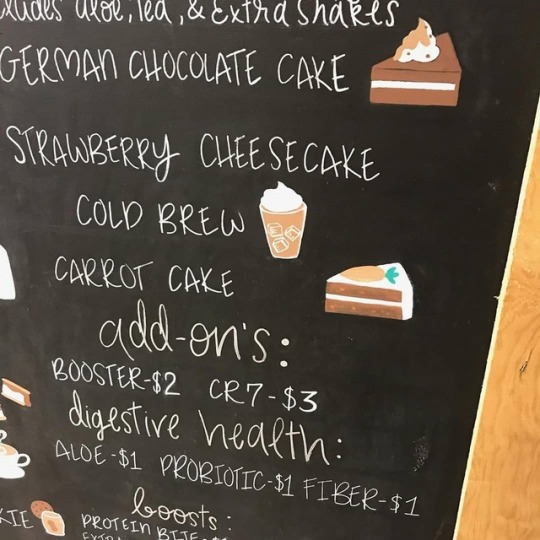 Aloe, Tea, & Extra Shakes
GERMAN CHOCOLATE CAKE
STRAWBERRY CHEESECAKE
COLD BREW
CARROT CAKE
add-on's:
BOOSTER-$2 CR7-$3
digestive health:
ALOE-$1 PROBIOTIC-$1 FIBER-$1
boosts:
PROTEIN